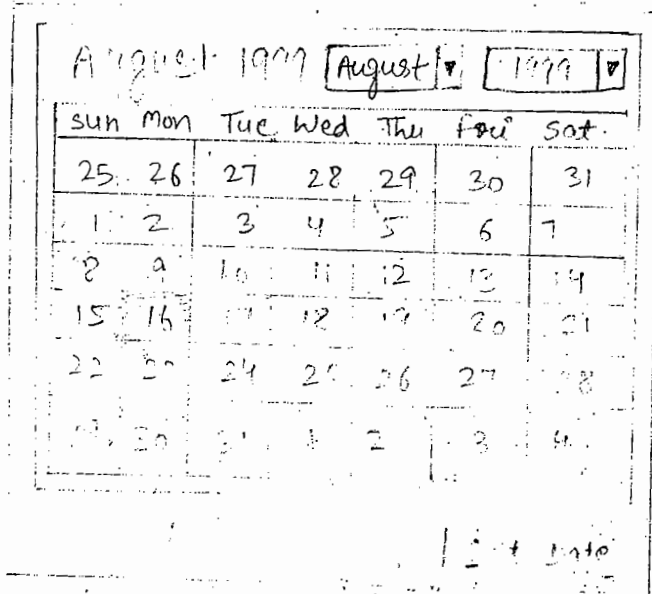 August 1999 August 1999
Sun Mon Tue Wed Thu Fri Sat.
25 26 27 28 29 30 31
1 2 3 4 5 6 7
8 9 10 11 12 13 14
15 16 17 18 19 20 21
22 24 26 27 28
30 31 1 2 3 4